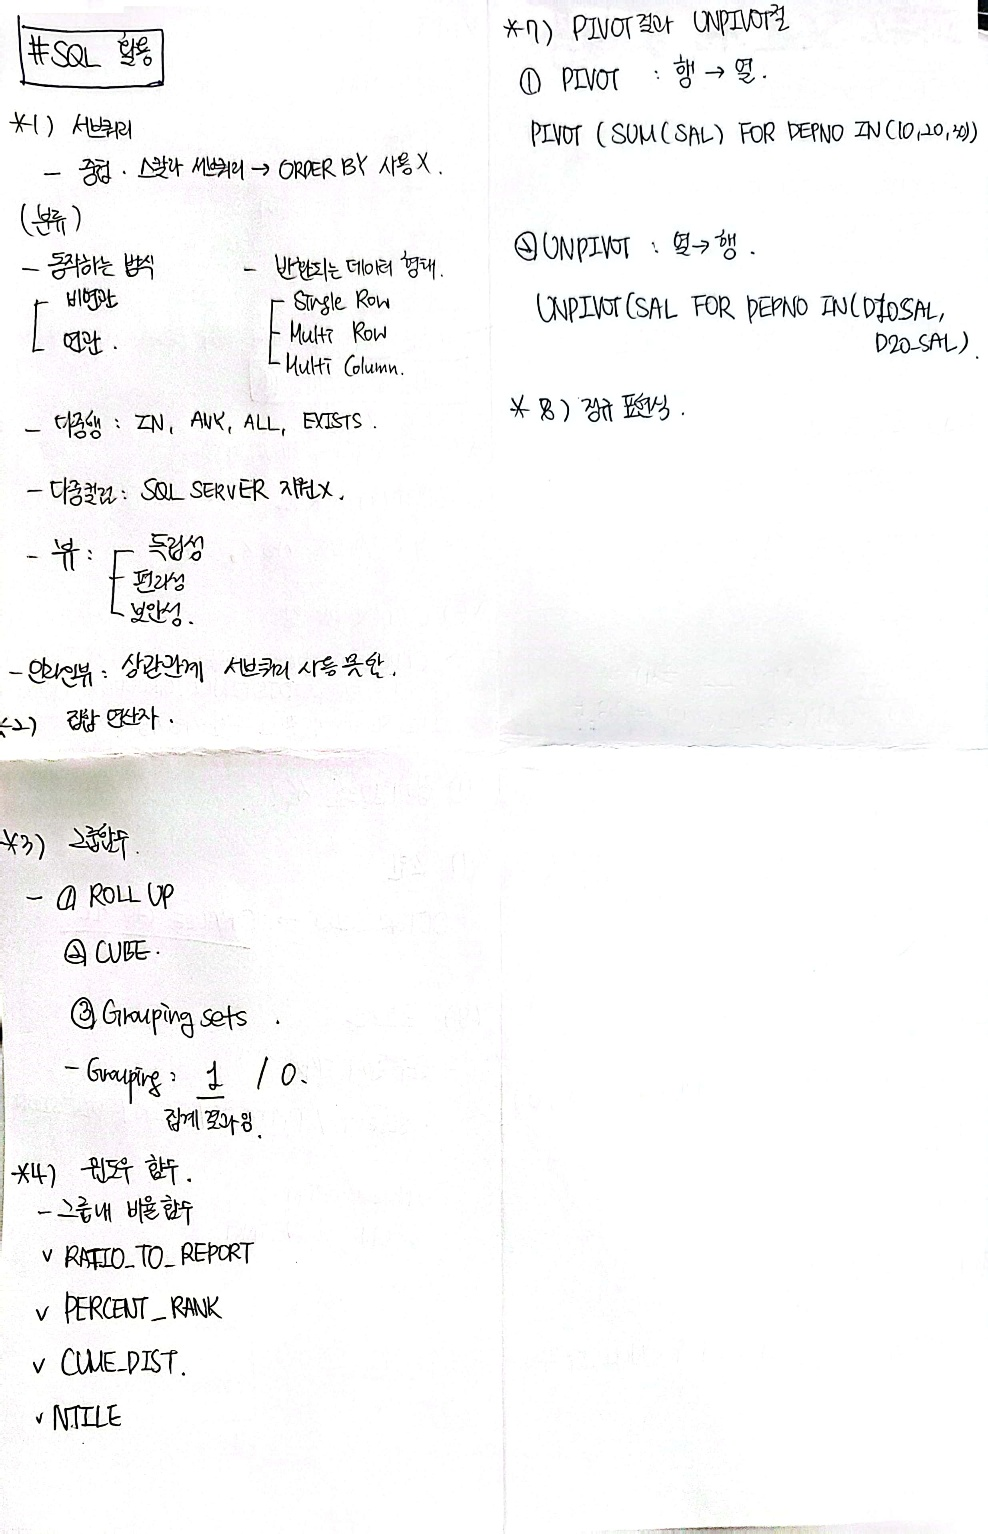 #SQL 활용
*1) 서브쿼리
- 중첩 · 스칼라 서브쿼리 → ORDER BY 사용X.
(분류)
- 동작하는 방식
비연관
연관.
- 반환되는 데이터 형태.
Single Row
Multi Row
Multi Column.
- 다중행 : IN, ANY, ALL, EXISTS.
- 다중컬럼 : SQL SERVER 지원X.
- 뷰 :
독립성
편리성
보안성.
- 인라인뷰 : 상관관계 서브쿼리 사용 못함.
*2) 집합 연산자.
*3) 그룹함수.
- ① ROLL UP
② CUBE.
③ Grouping sets.
- Grouping : 1 / 0.
집계 결과임.
*4) 윈도우 함수.
- 그룹 내 비율 함수
v RATIO_TO_REPORT
v PERCENT_RANK
v CUME_DIST.
v NTILE
*7) PIVOT절과 UNPIVOT절
① PIVOT : 행 → 열.
PIVOT (SUM(SAL) FOR DEPNO IN(10,20,30))
② UNPIVOT : 열 → 행.
UNPIVOT(SAL FOR DEPNO IN(D10SAL,
D20_SAL).
*8) 정규 표현식.